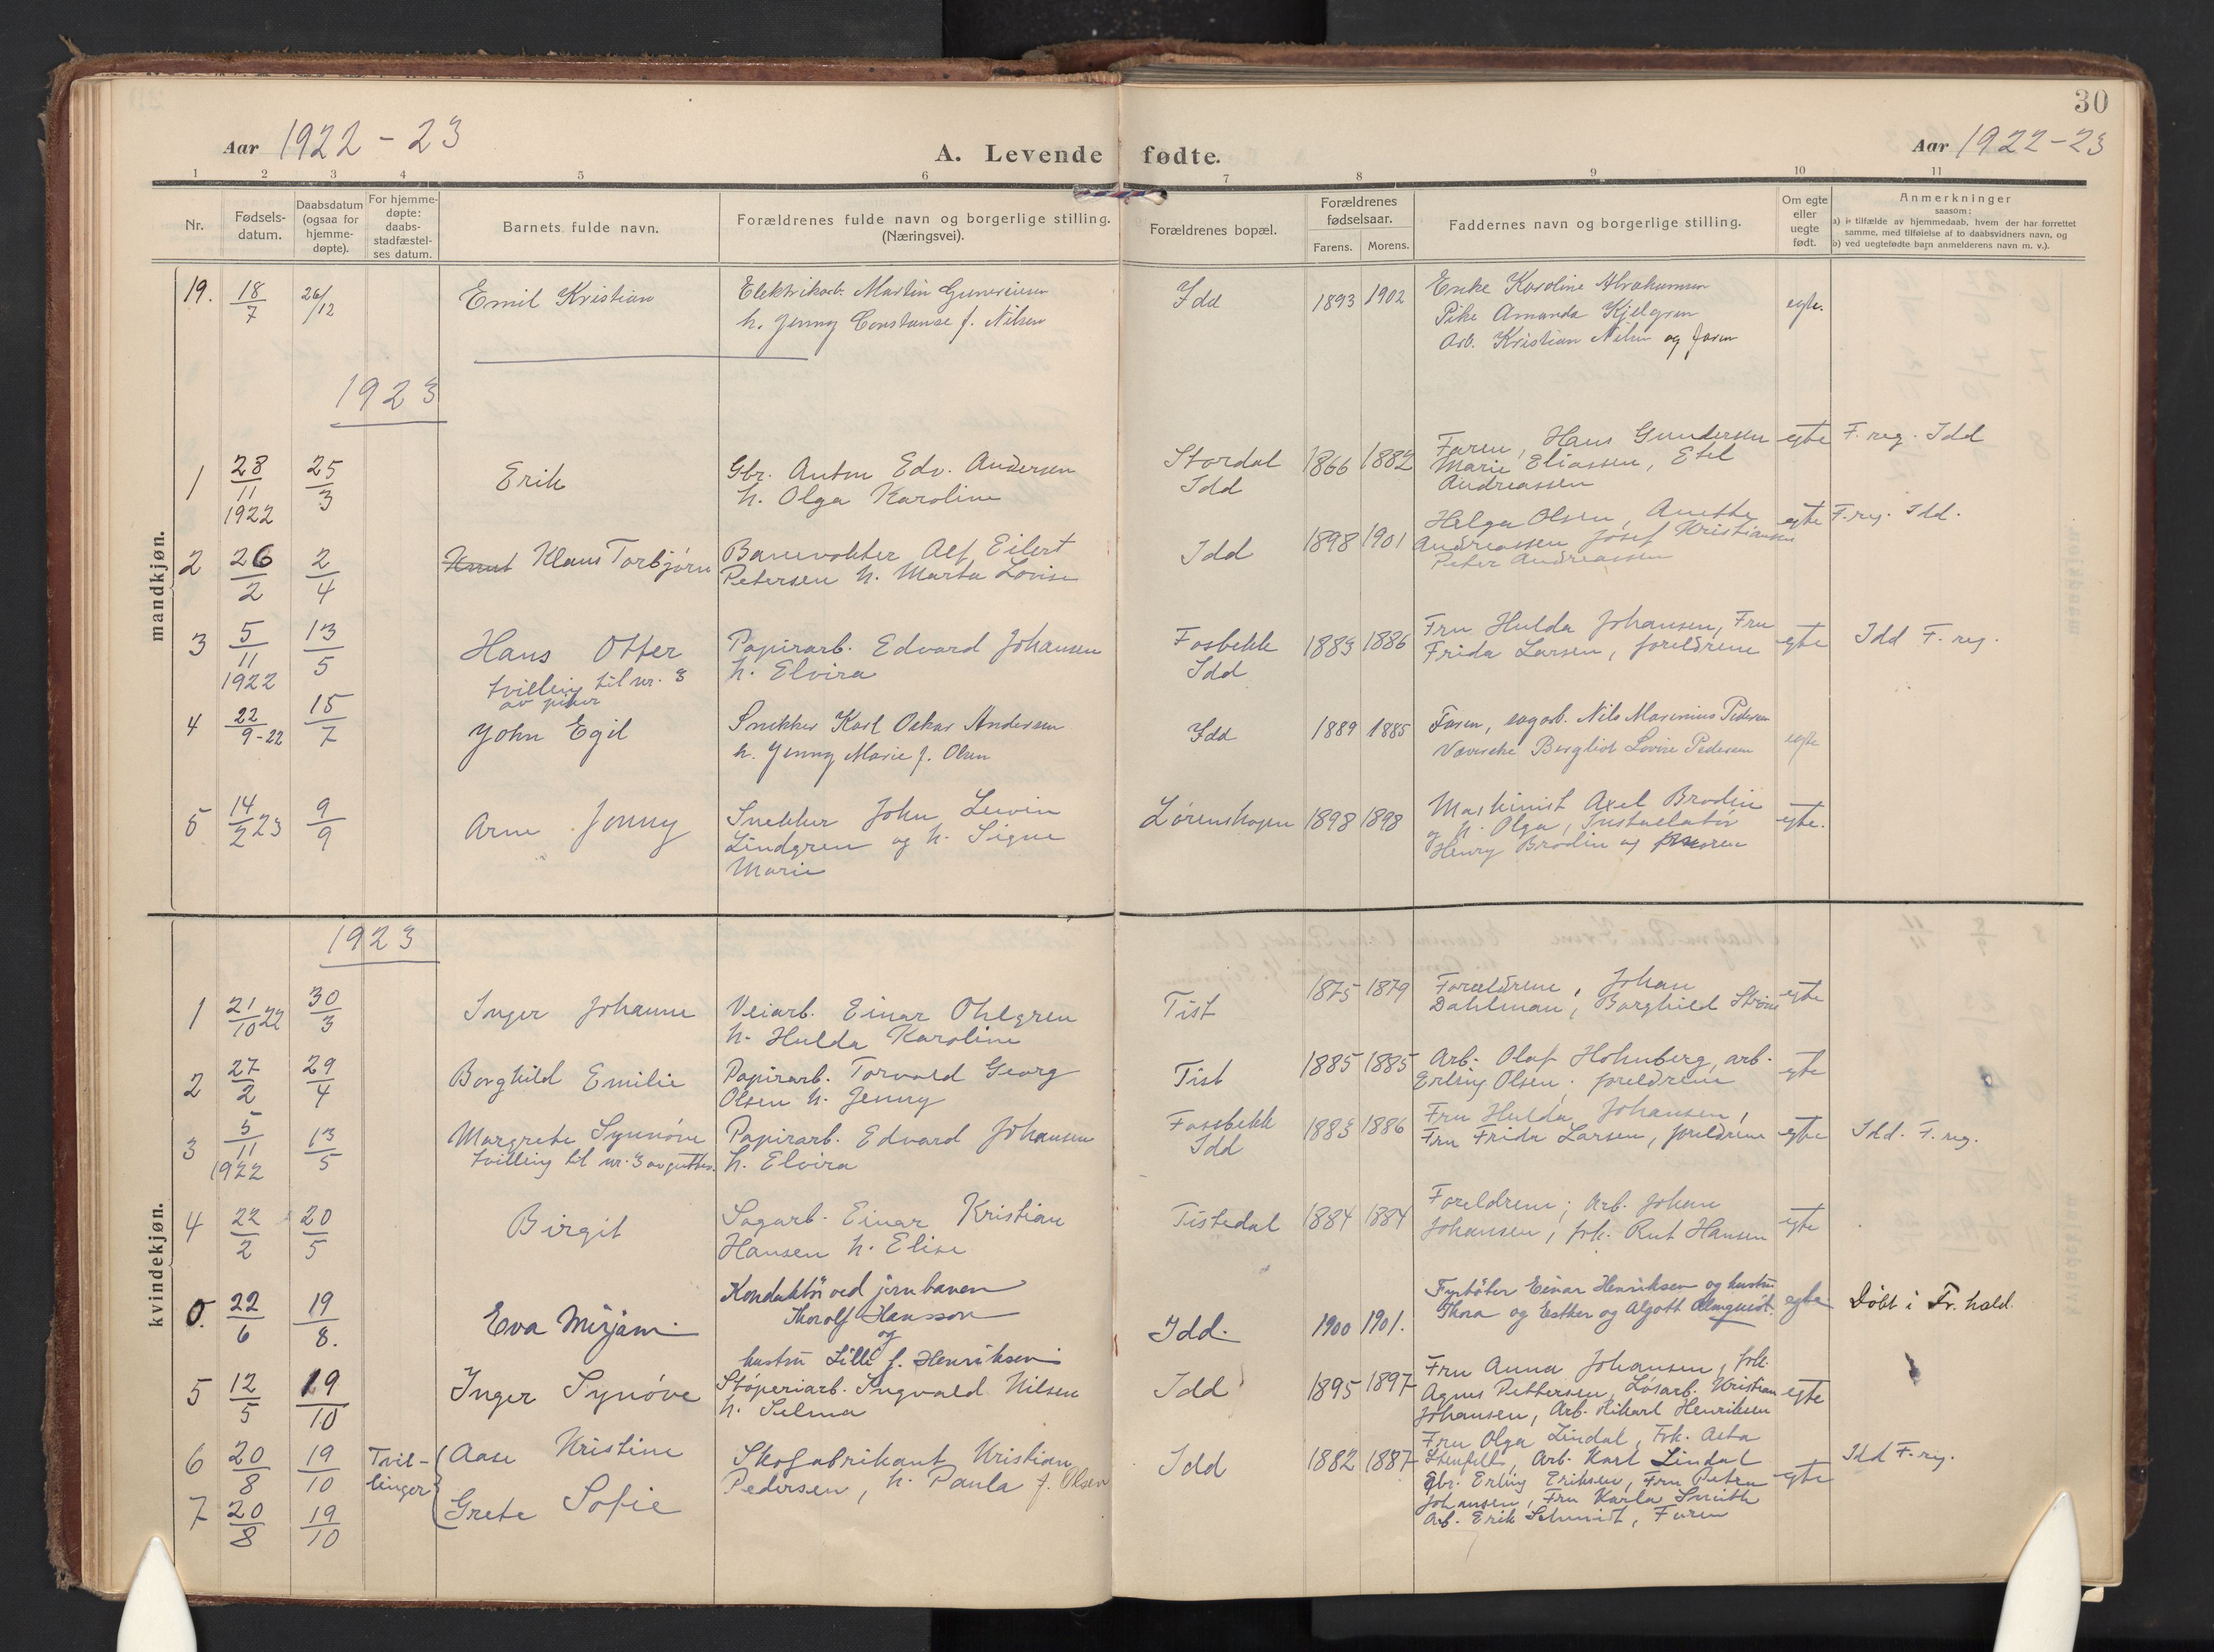 30
Aar 1922-23
A. Levende fødte.
Aar 1922-23
1 2 3 4 5 6 7 8 9 10 11
Nr.
Fødsels-
datum.
Daabsdatum
(ogsaa for
hjemme-
døpte).
For hjemme-
døpte:
daabs-
stadfæstel-
ses datum.
Barnets fulde navn.
Forældrenes fulde navn og borgerlige stilling.
(Næringsvei).
Forældrenes bopæl.
Forældrenes
fødselsaar.
Farens. Morens.
Faddernes navn og borgerlige stilling.
Om egte
eller
uegte
født.
Anmerkninger
saasom:
a) i tilfælde av hjemmedaab, hvem der har forrettet
samme, med tilføielse af to daabsvidners navn, og
b) ved uegtefødte barn anmelderens navn m. v.).
mandkjøn.
19. 18/7 26/12 Emil Kristian
Elektrikarb. Martin
h. Jenny Constanse f. Nilsen
Idd 1893 1902
Enke Karoline Abrahamsen
Pike Amanda Kjelgren
Arb. Kristian Nilsen og faren
egte.
1923
1 28/11 1922 25/3 Erik
Gbr. Anton Edv. Andersen
h. Olga Karoline
Stordal
Idd
1866 1882
Faren, Hans Gundersen
Marie Eliassen, Etel
Andreassen
egte F. reg. Idd
2 26/2 2/4 Knut Klaus Torbjørn
Banevokter Alf Eilert
Petersen h. Marta Lovise
Idd 1898 1901
Helga Olsen, Anette
Andreassen Josef Kristiansen
Peter Andreassen
egte F. reg. Idd.
3 5/11 1922 13/5 Hans Otter
tvilling til nr. 3
av piker
Papirarb. Edvard Johansen
h. Elvira
Fosbekk
Idd
1883 1886
Fru Hulda Johansen, Fru
Frida Larsen, foreldrene
egte Idd F. reg.
4 22/9-22 15/7 John Egil
Snekker Karl Oskar Andersen
h. Jenny Marie f. Olsen
Idd 1889 1885
Faren, sagarb. Nils Marenius Pedersen
Væverske Bergliot Lovise Pedersen
egte
5 14/2 23 9/9 Arne Jonny
Snekker John Levin
Lindgren og h. Signe
Marie
Lørenshagen 1898 1898
Maskinist Axel Brodin
og h. Olga, Installatør
Henry Brodin og
egte.
kvindekjøn.
1923
1 21/10 22 30/3 Inger Johanne
Veiarb. Einar Ohlgren
h. Hulda Karoline
Tist 1875 1879
Foreldrene, Johan
Dahlman, Borghild Strøm
egte
2 27/2 29/4 Borghild Emilie
Papirarb. Torvald Georg
Olsen h. Jenny
Tist 1885 1885
Arb. Olaf Holmberg, arb.
Erling Olsen. foreldrene
egte
3 5/11 1922 13/5 Margrete Synnøve
tvilling til nr. 3 av gutter.
Papirarb. Edvard Johansen
h. Elvira
Fossbekk
Idd
1883 1886
Fru Hulda Johansen,
Fru Frida Larsen, foreldrene
egte Idd. F. reg.
4 22/2 20/5 Birgit
Sagarb. Einar Kristian
Hansen h. Elise
Tistedal 1884 1884
Foreldrene; Arb. Johan
Johansen, frk. Rut Hansen
egte
0. 22/6 19/8. Eva Mirjam
Konduktør ved jernbanen
Thorolf Hansson
og
hustru Lilli f. Henriksen
Idd. 1900 1901.
Fyrbøter Einar Henriksen og hustru
Thora og Esther og Algott Almquist.
egte Døbt i Fr.hald.
5 12/5 19/10 Inger Synøve
Støperiarb. Ingvald Nilsen
h. Selma
Idd 1895 1897
Fru Anna Johansen, frk.
Agnes Pettersen, Løsarb. Kristian
Johansen, Arb. Rikart Henriksen
egte
6 20/8 19/10 Tvil-
linger
Aase Kristine
7 20/8 19/10 Grete Sofie
Skofabrikant Kristian
Pedersen, h. Paula f. Olsen
Idd 1882 1887
Fru Olga Lindal, Frk. Asta
Stenfelt, Arb. Karl Lindal
Gbr. Erling Eriksen, Fru Petra
Johansen, Fru Karla Smith
Arb. Erik Schmidt, Faren
egte Idd F. reg.